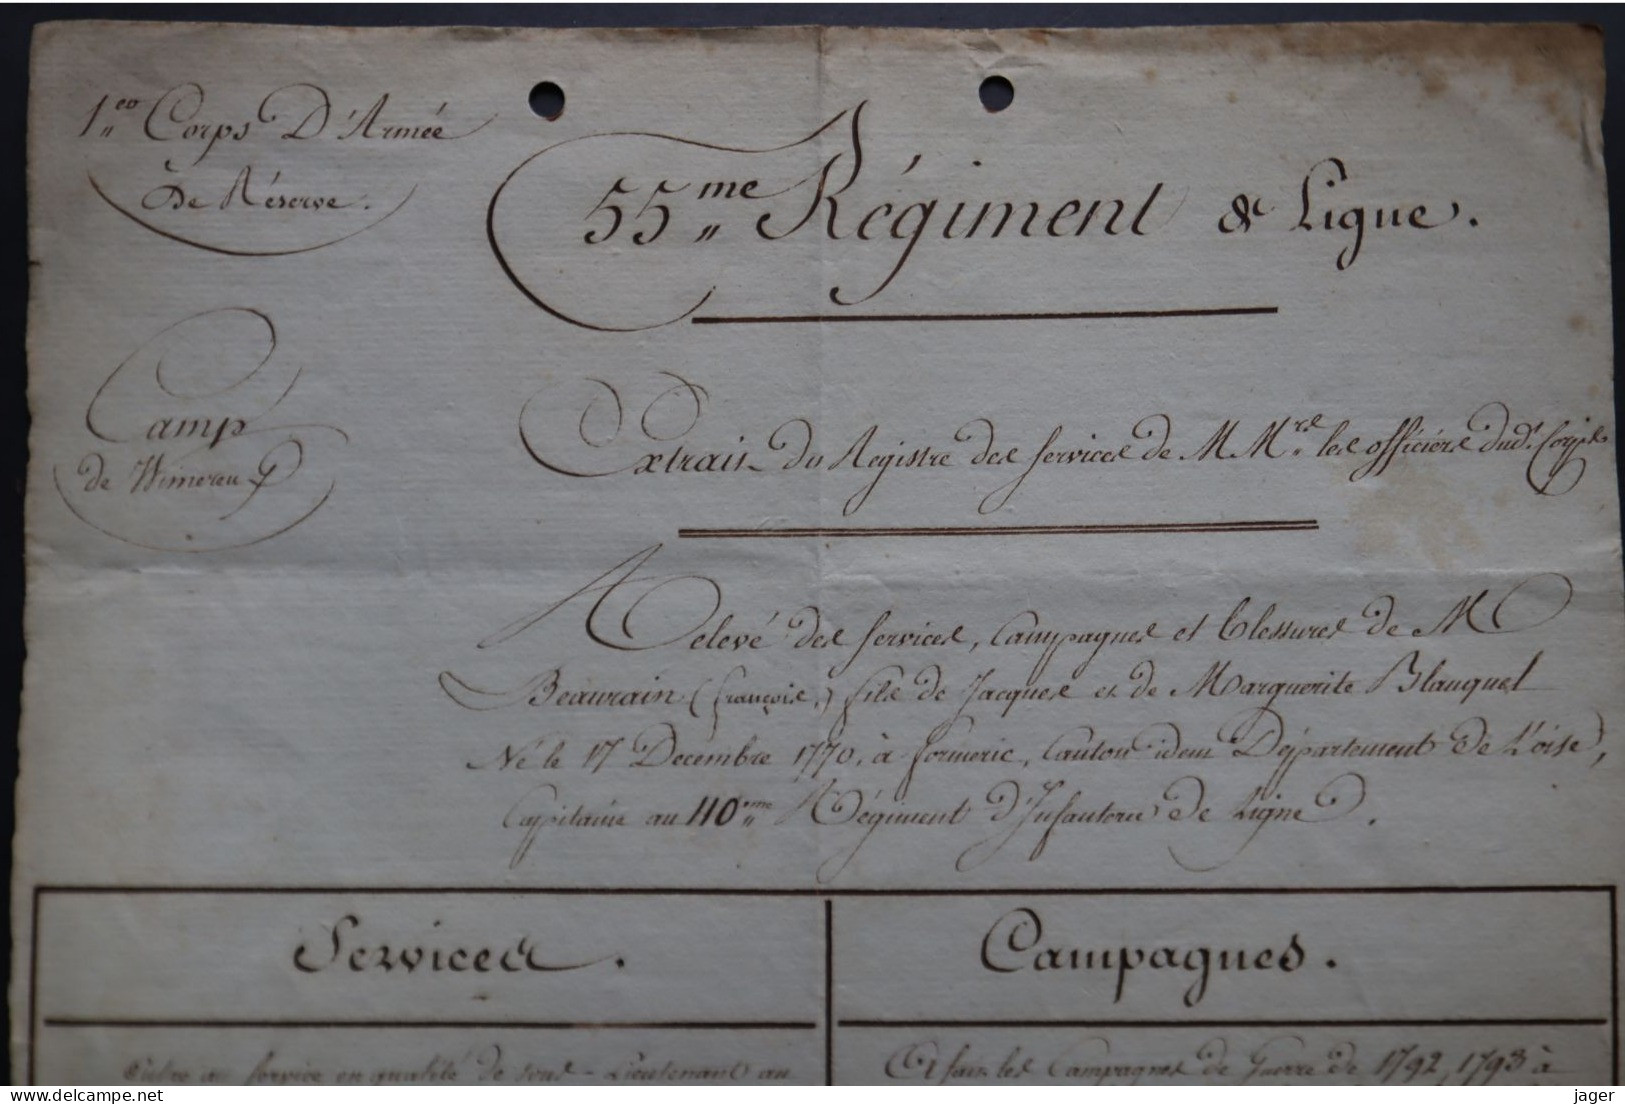 1.er Corps D'Armée
De Réserve.
55.me Régiment de Ligne.
Camp
de Wimereu
Extrait du Registre des Services de MM.rs les officiers dud.t Corps
Relevé des Services, Campagnes et blessures de M
Beaurain (françois,) fils de Jacques et de Marguerite Blanquet
Né le 17 Décembre 1770, à formerie, Canton idem Département de L'oise,
Capitaine au 110.eme Régiment d'Infanterie de Ligne.
Services.
Campagnes.
Entré au Service en qualité de sous-Lieutenant au
A fait les Campagnes de Guerre de 1792, 1793 à
jager
delcampe.net